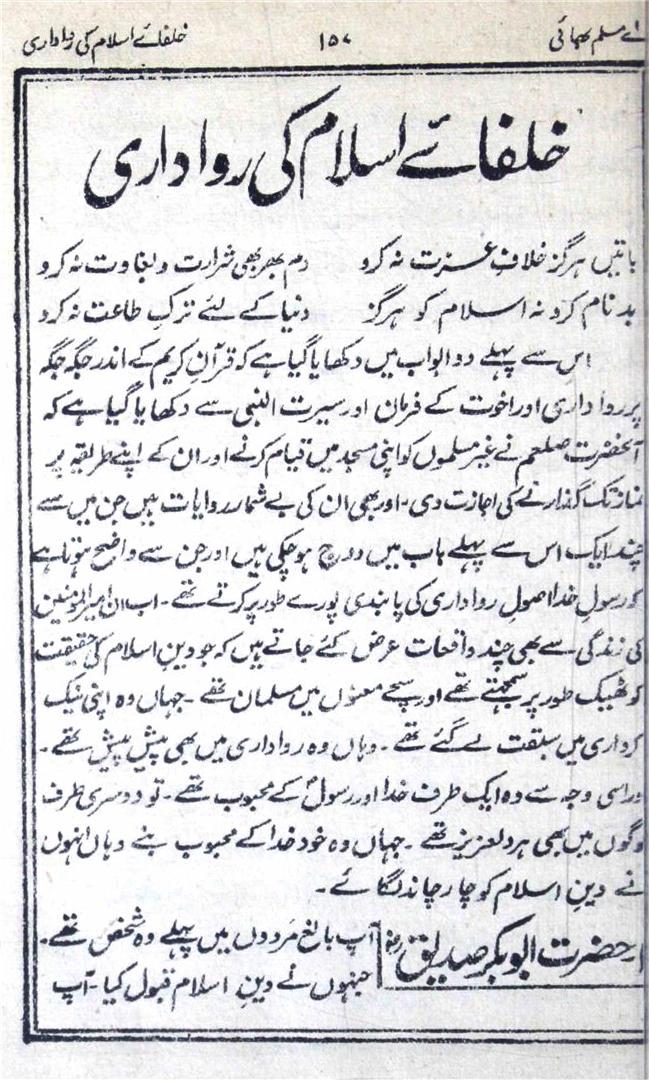 اے مسلم بھائی ۱۵۷ خلفائے اسلام کی رواداری
خلفائے اسلام کی رواداری
باتیں ہرگز خلافِ عزت نہ کرو دم بھر بھی شرارت و بغاوت نہ کرو
بدنام کرو نہ اسلام کو ہرگز دنیا کے لئے ترکِ طاعت نہ کرو
اس سے پہلے دو ابواب میں دکھایا گیا ہے کہ قرآنِ کریم کے اندر جگہ جگہ
پر رواداری اور اخوت کے فرمان اور سیرت النبی سے دکھایا گیا ہے کہ
آنحضرت صلعم نے غیر مسلموں کو اپنی مسجد میں قیام کرنے اور ان کے اپنے طریقہ پر
نماز تک گذارنے کی اجازت دی۔ اور بھی ان کی بے شمار روایات ہیں جن میں سے
چند ایک اس سے پہلے باب میں درج ہو چکی ہیں اور جن سے واضح ہوتا ہے
کہ رسولِ خدا اصولِ رواداری کی پابندی پورے طور پر کرتے تھے۔ اب ان امیرالمومنین
کی زندگی سے بھی چند واقعات عرض کئے جاتے ہیں کہ جو دینِ اسلام کی حقیقت
کو ٹھیک طور پر سمجھتے تھے اور سچے معنوں میں مسلمان تھے۔ جہاں وہ اپنی نیک
کرداری میں سبقت لے گئے تھے۔ وہاں وہ رواداری میں بھی پیش پیش تھے۔
اور اسی وجہ سے وہ ایک طرف خدا اور رسولؐ کے محبوب تھے۔ تو دوسری طرف
لوگوں میں بھی ہر دلعزیز تھے۔ جہاں وہ خود خدا کے محبوب بنے وہاں انہوں
نے دینِ اسلام کو چار چاند لگائے۔
۱۔ حضرت ابوبکر صدیقؓ آپ بالغ مردوں میں پہلے وہ شخص تھے۔
جنہوں نے دینِ اسلام قبول کیا۔ آپ